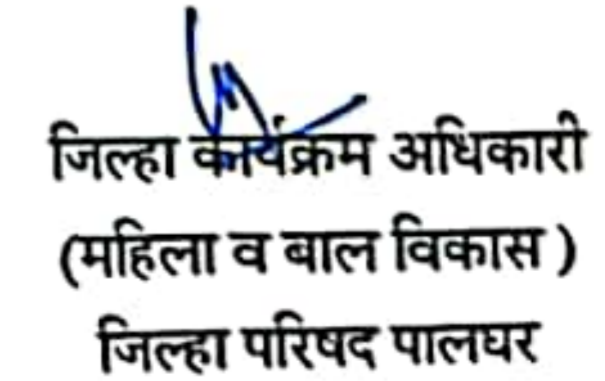 जिल्हा कार्यक्रम अधिकारी
(महिला व बाल विकास )
जिल्हा परिषद पालघर